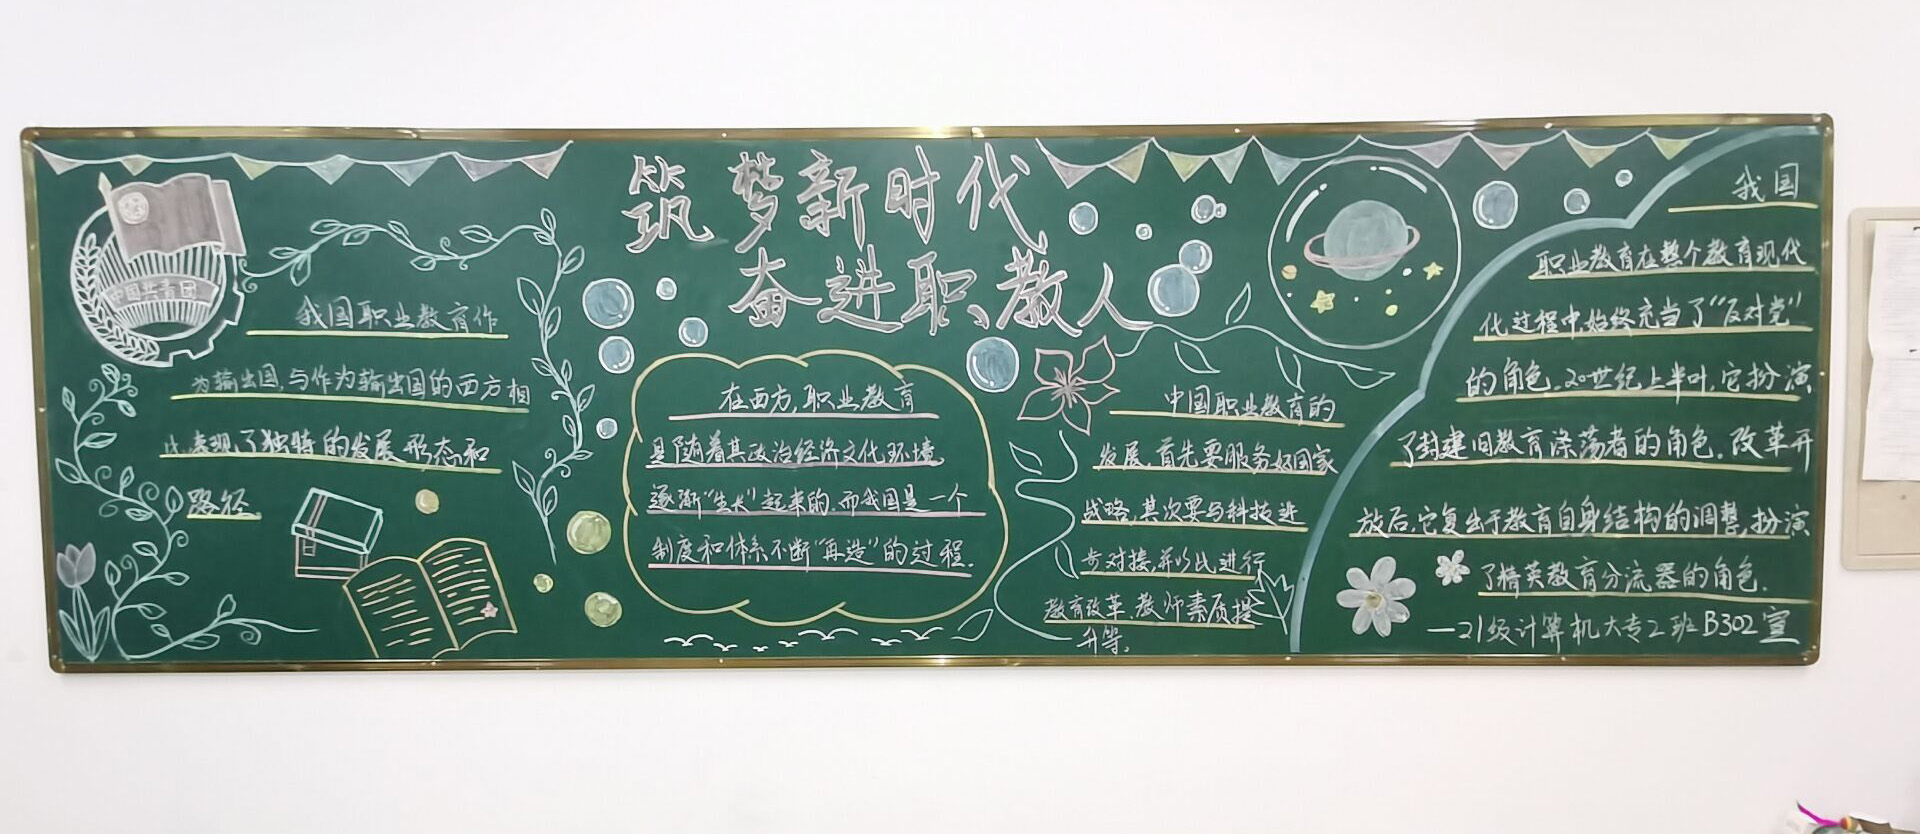 筑梦新时代
奋进职教人
中国共青团
我国职业教育作
为输出国,与作为输出国的西方相
比,表现了独特的发展形态和
路径。
在西方,职业教育
是随着其政治经济文化环境,
逐渐“生长”起来的.而我国是一个
制度和体系不断“再造”的过程.
中国职业教育的
发展,首先要服务好国家
战略,其次要与科技进
步对接,并以此进行
教育改革、教师素质提
升等。
我国
职业教育在整个教育现代
化过程中,始终充当了“反对党”
的角色.20世纪上半叶,它扮演
了封建旧教育涤荡者的角色.改革开
放后,它复出于教育自身结构的调整,扮演
了精英教育分流器的角色.
—21级计算机大专2班B302宣